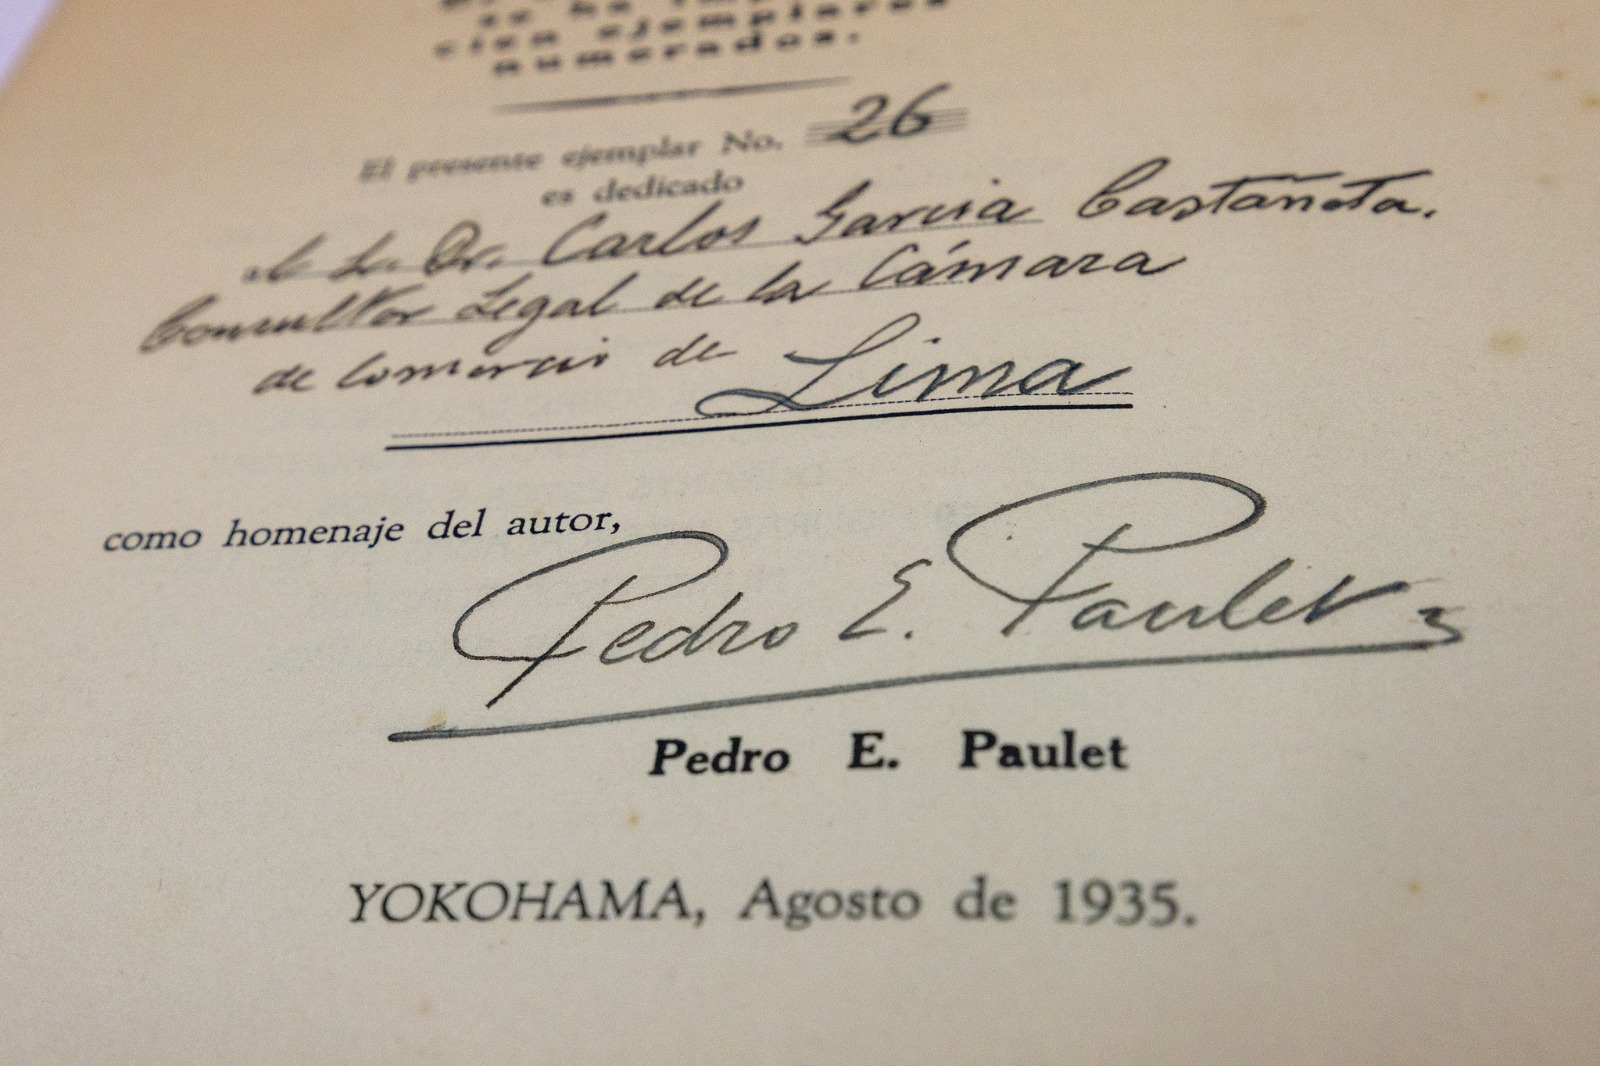 cien ejemplares
numerados.
El presente ejemplar No. 26
es dedicado
al Sr. Dr. Carlos Garcia Castañeta.
Consultor Legal de la Cámara
de Comercio de Lima
como homenaje del autor,
Pedro E. Paulet
Pedro E. Paulet
YOKOHAMA, Agosto de 1935.